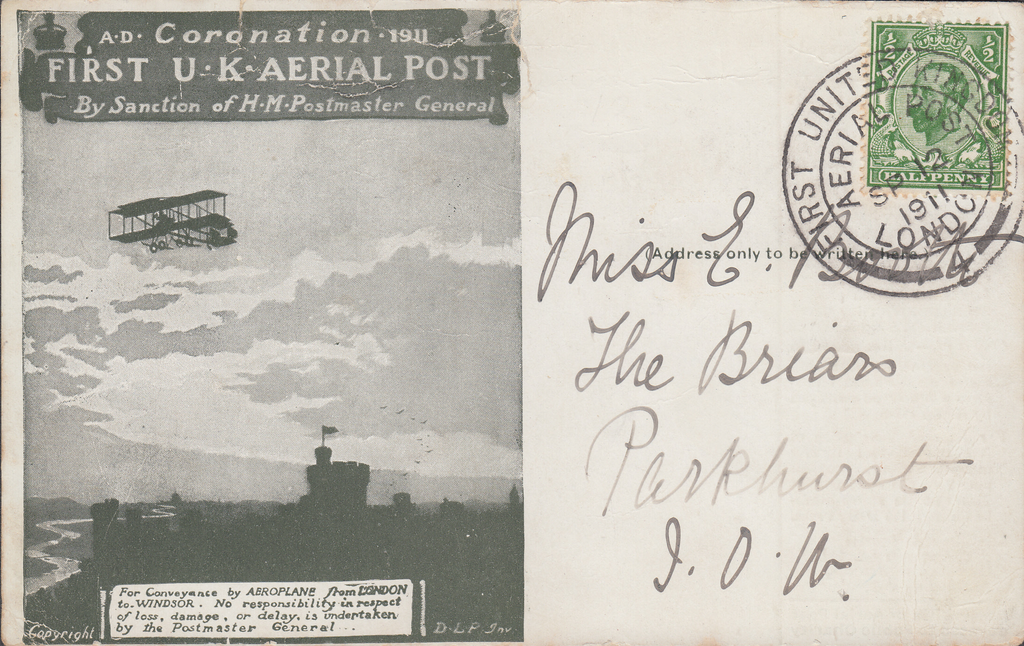 A·D· Coronation ·1911
FIRST U·K·AERIAL POST
By Sanction of H·M·Postmaster General
For Conveyance by AEROPLANE from LONDON
to WINDSOR. No responsibility in respect
of loss, damage, or delay, is undertaken
by the Postmaster General...
Copyright
D·L·P· Inv
½ ½
POSTAGE REVENUE
HALFPENNY
FIRST UNITED
AERIAL POST
SP 12
1911
LONDON
Address only to be written here.
Miss E.
The Briars
Parkhurst
I. O. W.